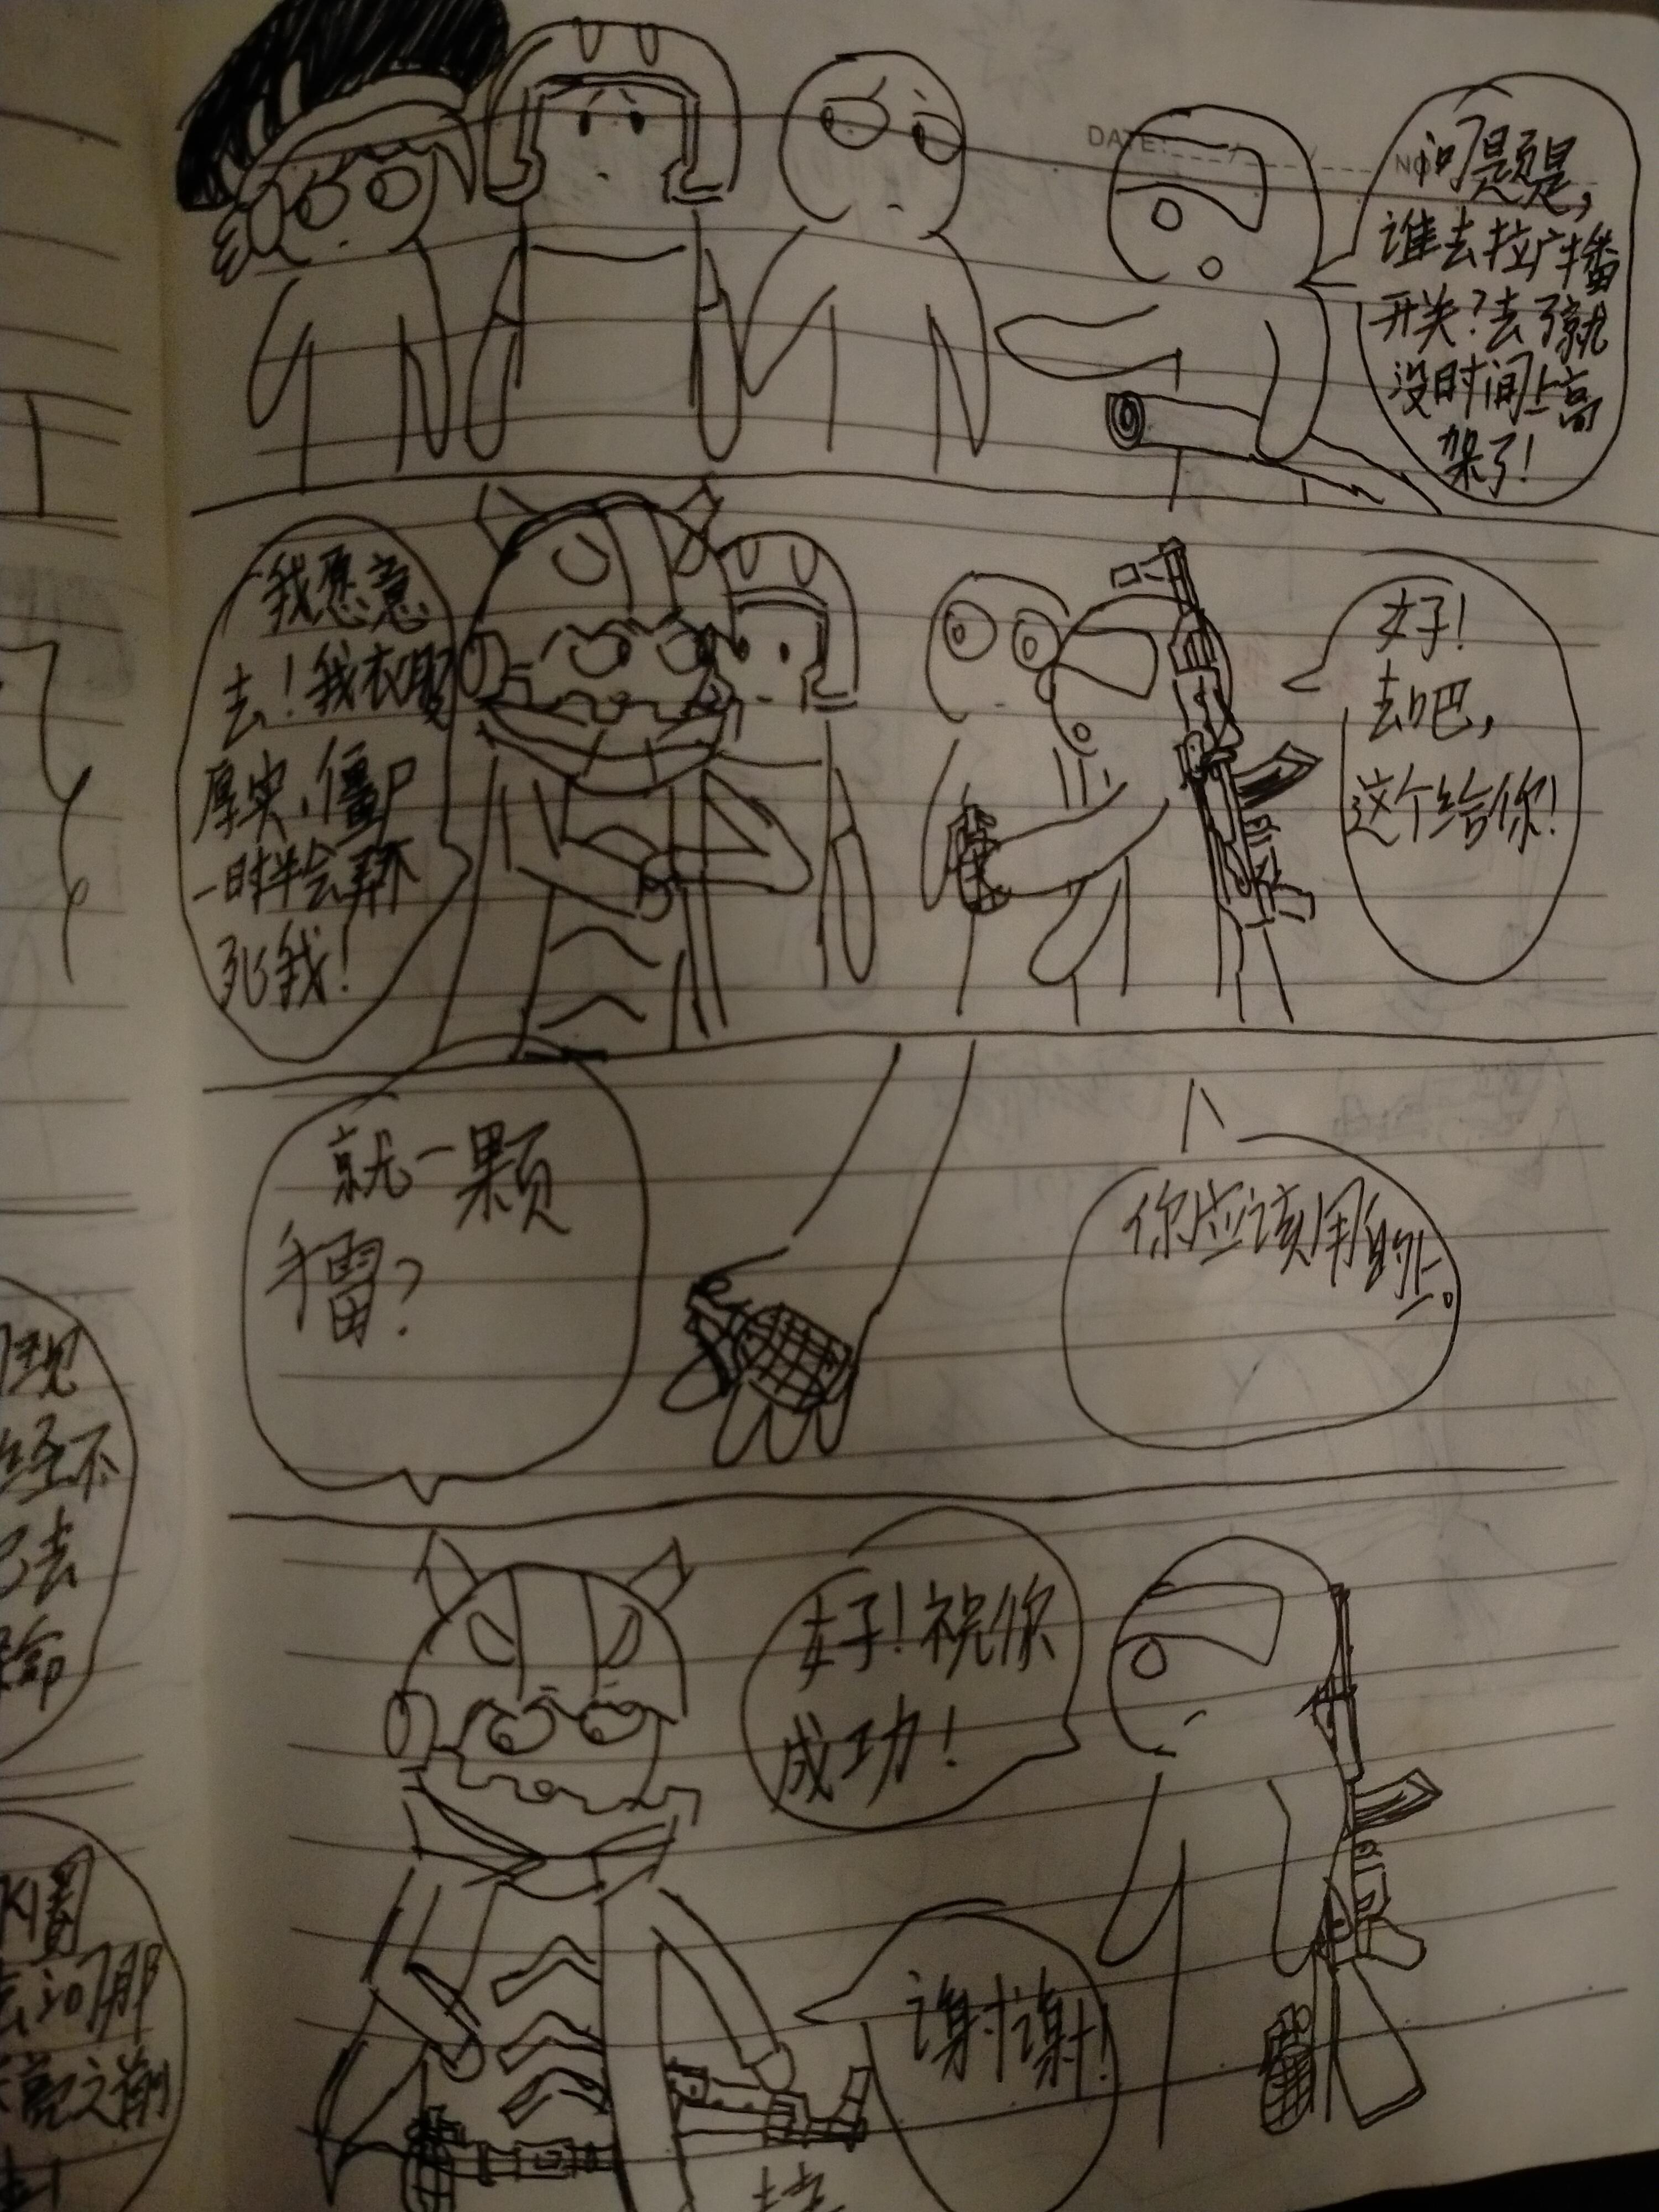 DATE:
NO
问题是,
谁去拉广播
开关?去了就
没时间上高
架了!
我愿意
去!我衣服
厚实,僵尸
一时半会弄不
死我!
好!
去吧,
这个给你!
就一颗
手雷?
你应该用的上。
好!祝你
成功!
谢谢!
现
经不
去
命
划
去
之前